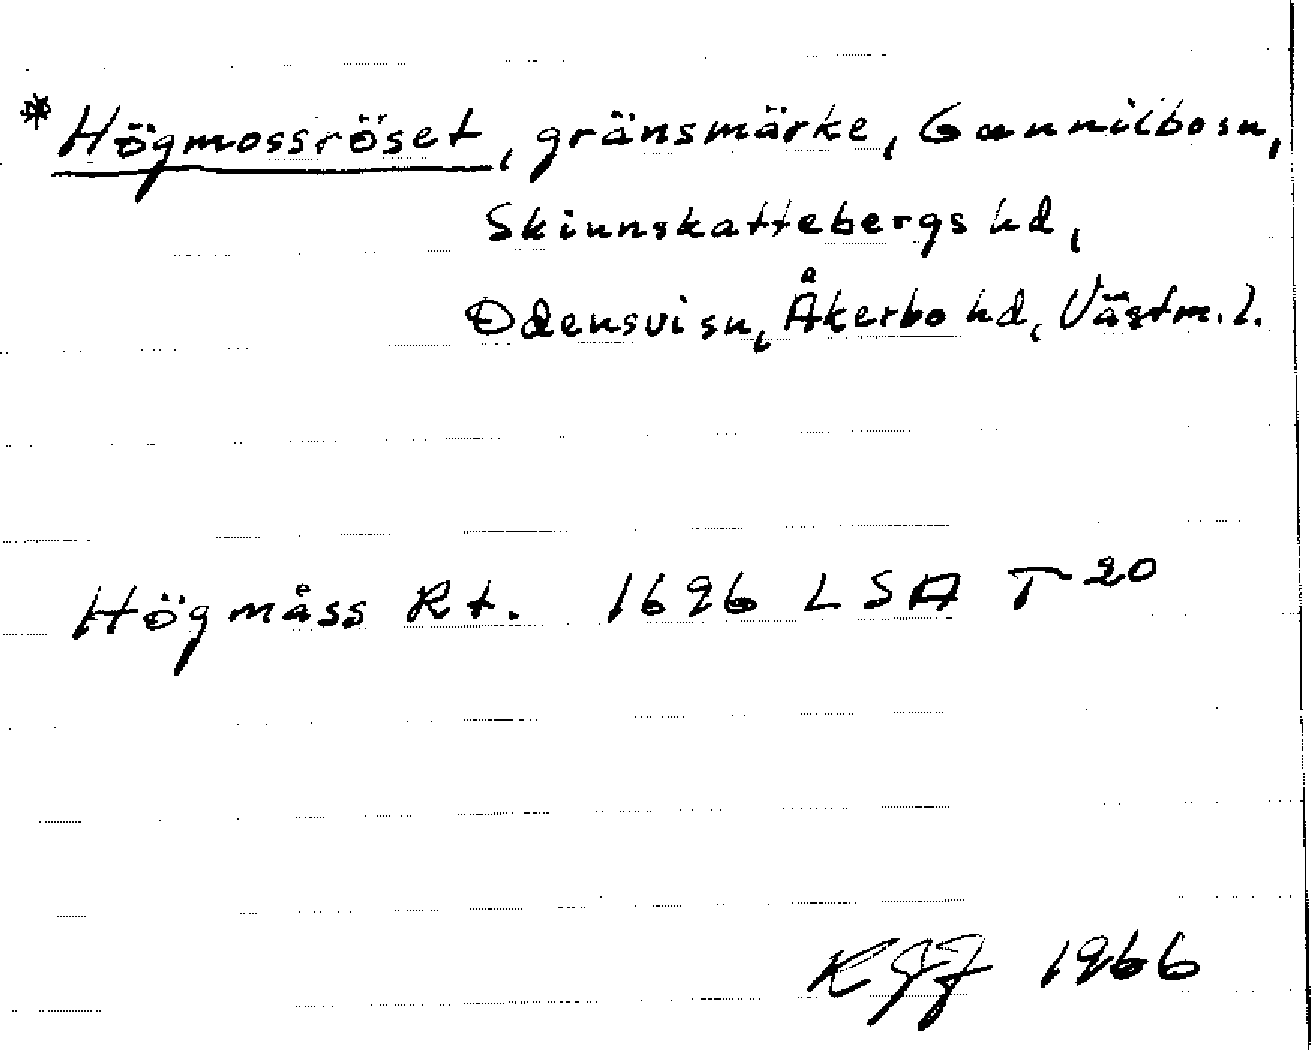 * Högmossröset, gränsmärke, Gunnilbo sn,
Skinnskattebergs hd,
Odensvi sn, Åkerbo hd, Västm. l.
Högmåss Rt. 1696 LSA T 20
1966